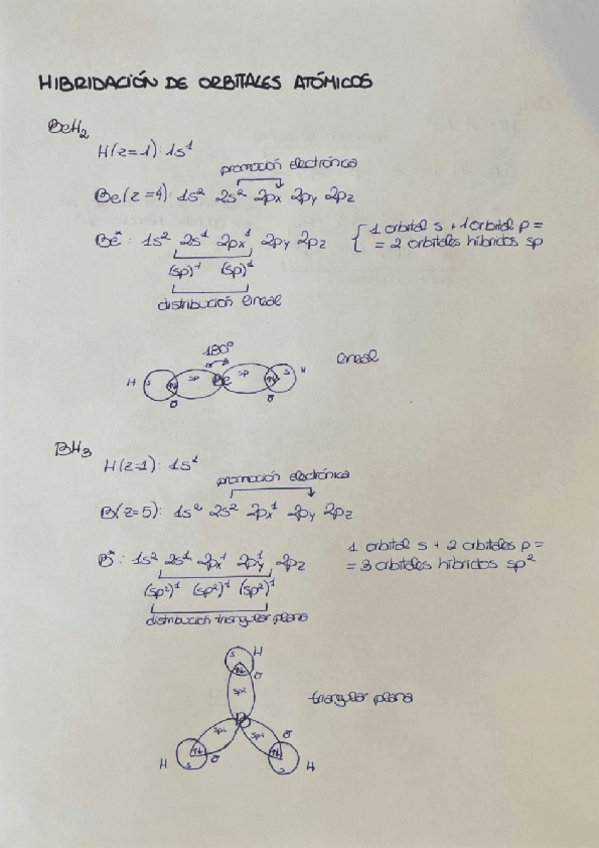 HIBRIDACIÓN DE ORBITALES ATÓMICOS
BeH₂
H(z=1): 1s¹
promoción electrónica
Be(z=4): 1s² 2s² 2px 2py 2pz
Be*: 1s² 2s¹ 2px¹ 2py 2pz
{ 1 orbital s + 1 orbital p =
= 2 orbitales híbridos sp
(sp)¹ (sp)¹
distribución lineal
180º
lineal
H s sp Be sp s H
σ σ
BH₃
H(z=1): 1s¹
promoción electrónica
B(z=5): 1s² 2s² 2px¹ 2py 2pz
B*: 1s² 2s¹ 2px¹ 2py¹ 2pz
1 orbital s + 2 orbitales p =
= 3 orbitales híbridos sp²
(sp²)¹ (sp²)¹ (sp²)¹
distribución triangular plana
s H
σ
sp²
triangular plana
B
sp² sp² σ
H σ s H